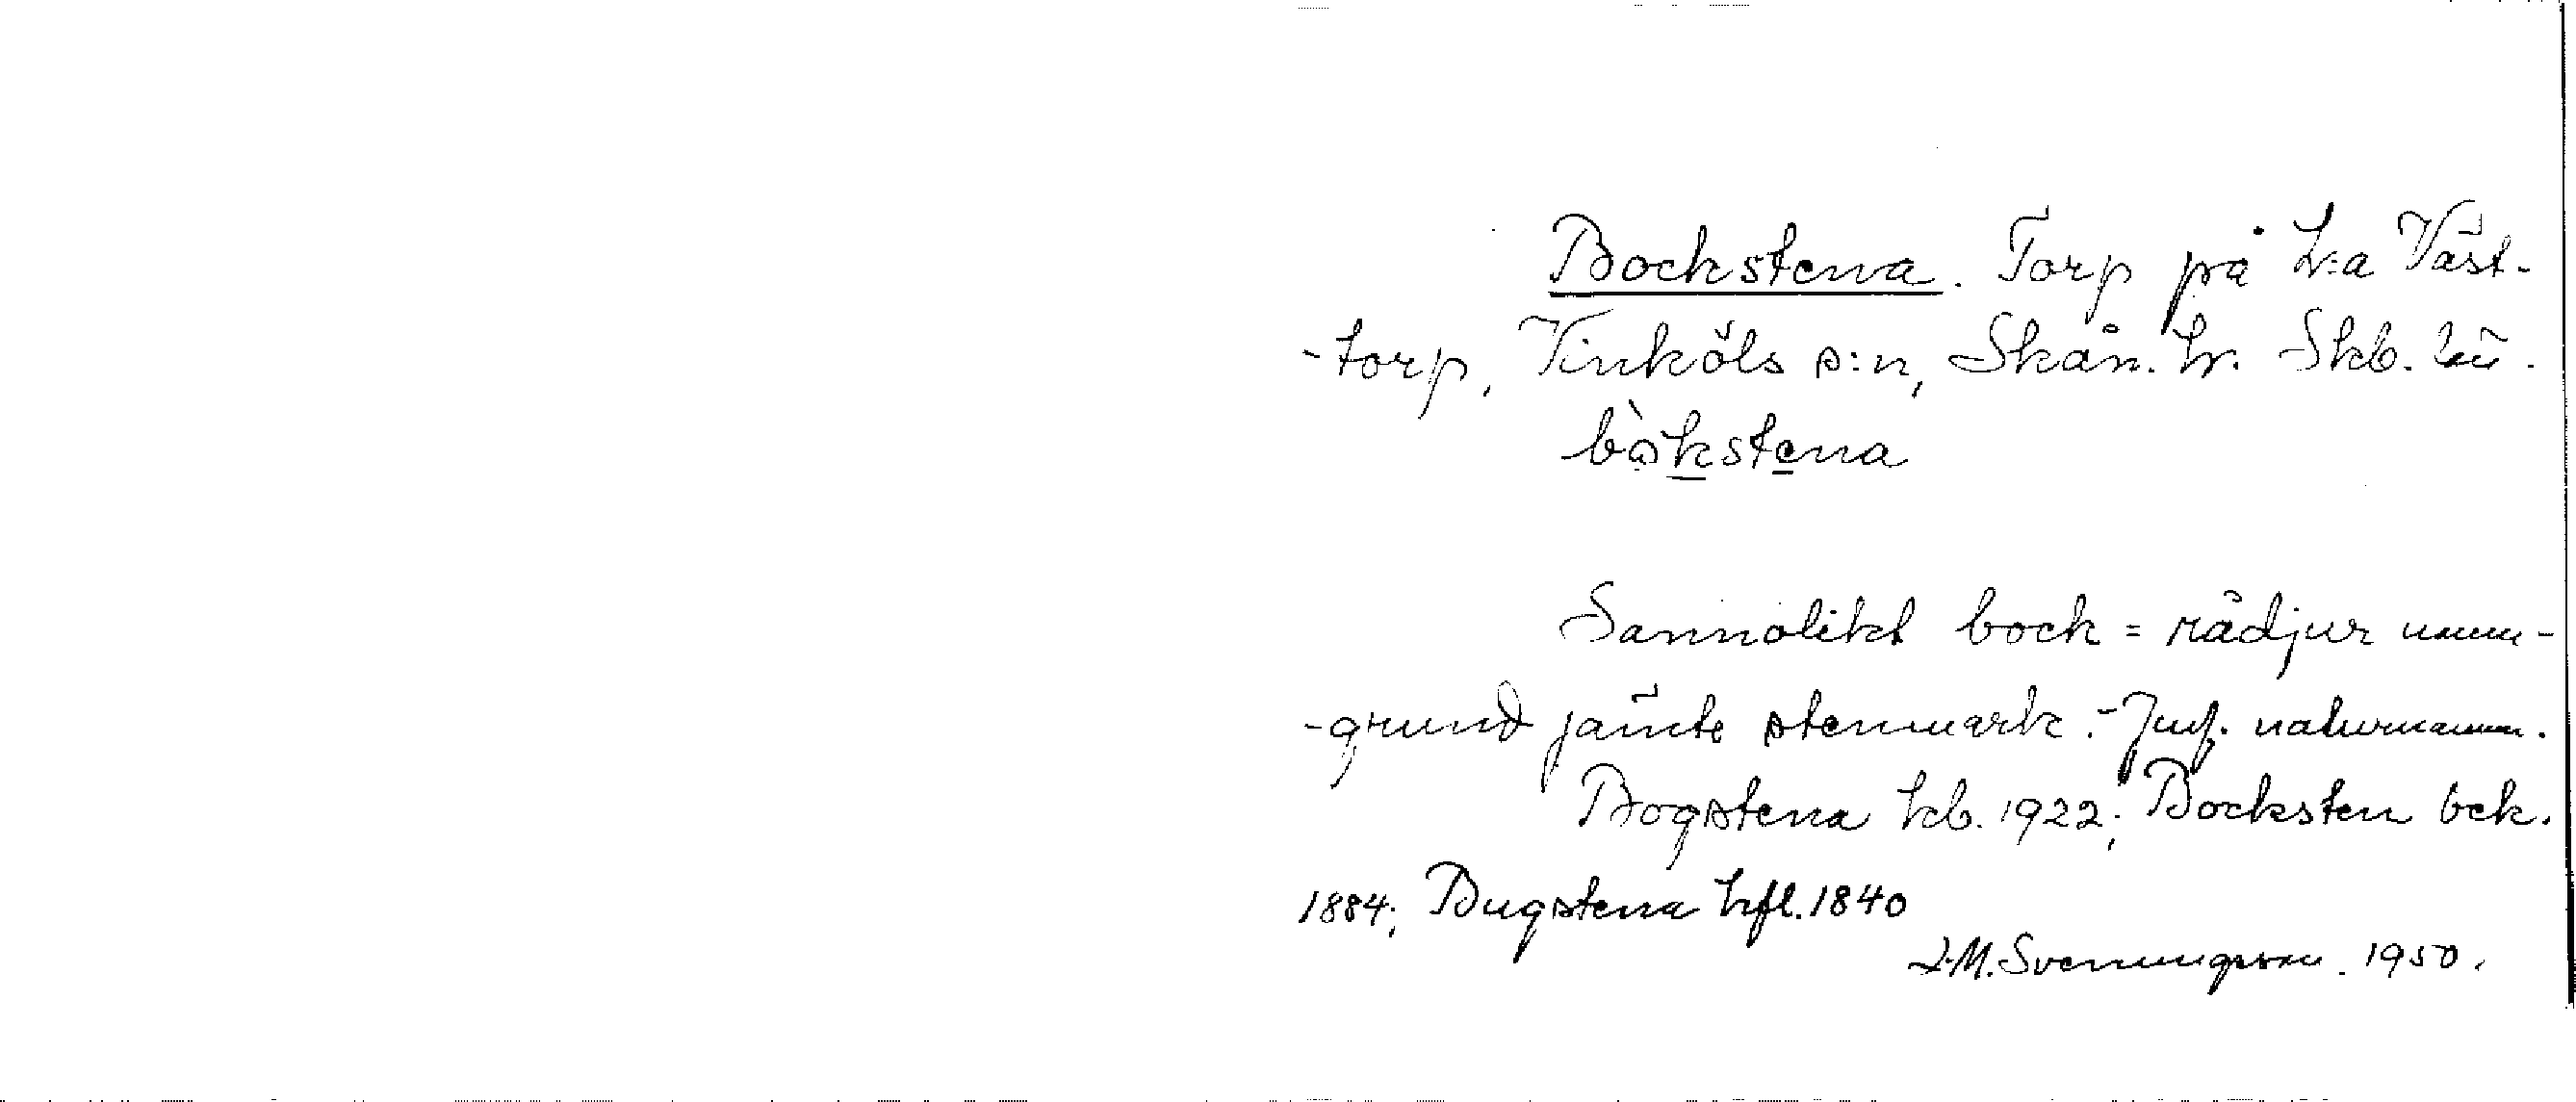 Bockstena. Torp på L:a Väst-
-torp, Vinköls s:n, Skån. hr. Skb. län.
bòkstena
Sannolikt bock = rådjur namn-
-grund jämte stenmark. - Jmf. naturnamn.
Bogstena kb. 1922; Bocksten bek.
1884; Bugstena hfl. 1840
J.M. Svenungsson. 1950.